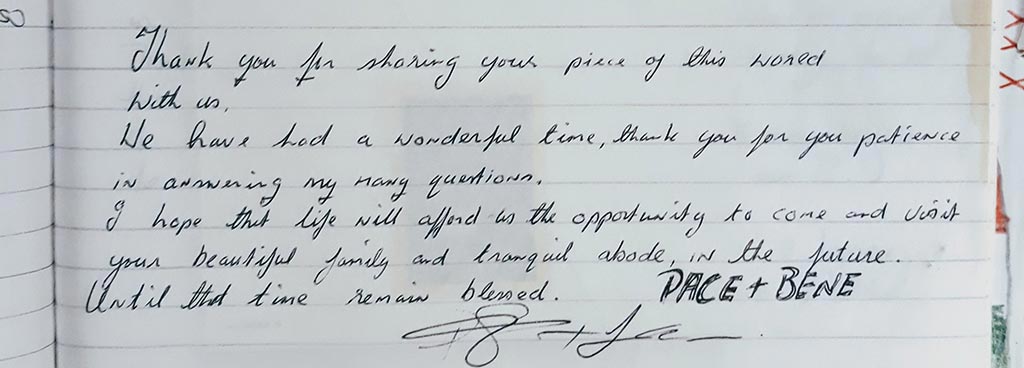 Thank you for sharing your piece of this world
with us.
We have had a wonderful time, thank you for you patience
in answering my many questions.
I hope that life will afford us the opportunity to come and visit
your beautiful family and tranquil abode, in the future.
Until that time remain blessed. PACE + BENE